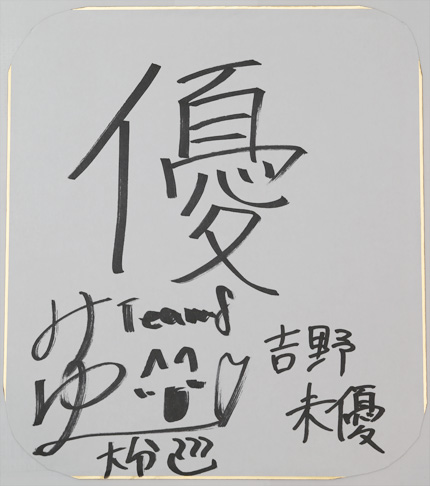 優
TeamS
みゆ
吉野
未優
大分